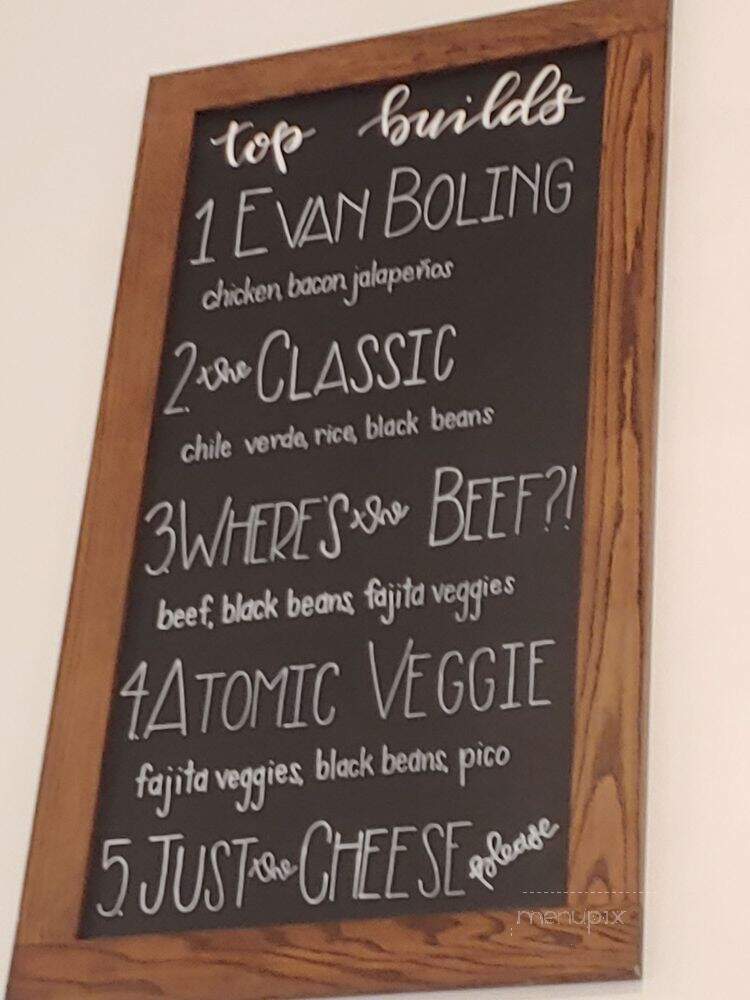 top builds
1 EVAN BOLING
chicken, bacon, jalapeños
2. the CLASSIC
chile verde, rice, black beans
3 WHERE'S the BEEF?!
beef, black beans, fajita veggies
4. ATOMIC VEGGIE
fajita veggies, black beans, pico
5. JUST the CHEESE please
menupix